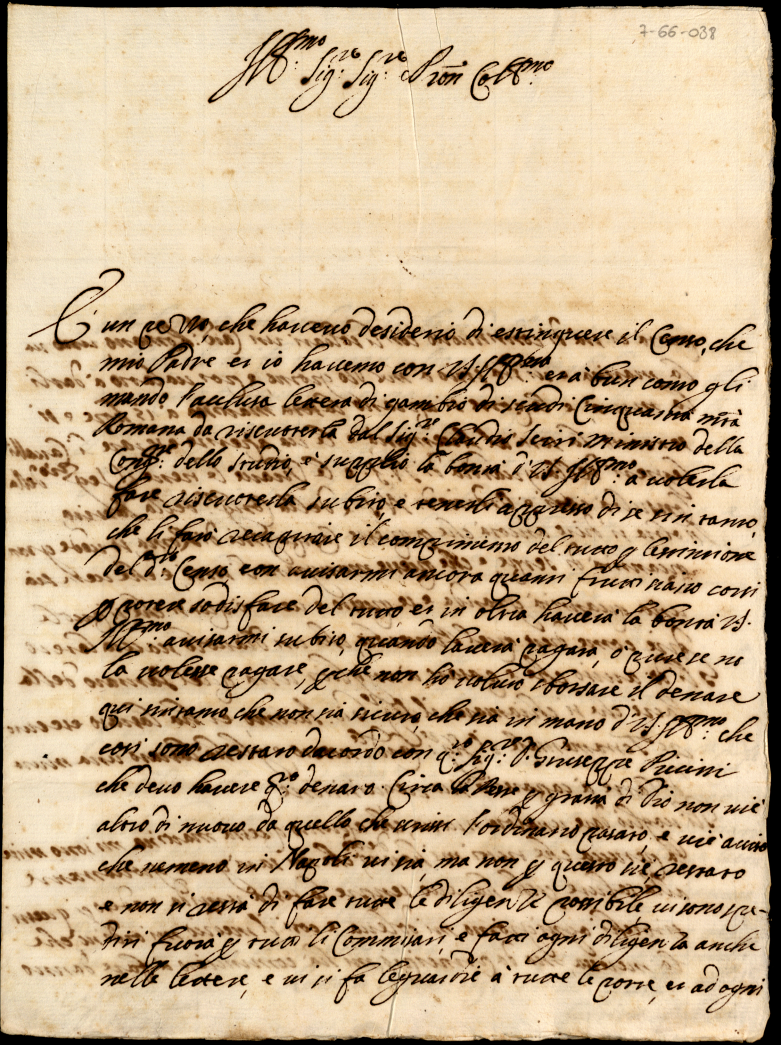 7-66-038
Ill.mo Sig.re Sig.re Pron Coll.mo
È un pezzo, che havevo desiderio di estinguere il Censo, che
mio Padre et io havemo con VS. Ill.ma et a bun como gli
mando l'acclusa lettera di gambio di scudi Cinquanta mta
Romana da riscuoterla dal Sig.re Claudio Serri ministro della
Cong.ne dello Studio, e supplico la bontà di VS. Ill.ma a volerla
fare riscuoterla subito, e tenerli appresso di se sin tanto,
che li farò recapitare il compimento del tutto p lestintione
del d.to Censo, con avisarmi ancora quanti frutti siano corsi
p potere sodisfare del tutto et in oltra haverà la bontà VS.
Ill.ma avisarmi subito, quando laverà pagata, ò pure se no
la volesse pagare, p che non ho voluto sborsare il denare
qui sintanto che non sia sicuro, che sia in mano di VS. Ill.ma che
così sono restato dacordo con q.to Sig.re D. Giuseppe Puccini
che devo havere q.to denaro. Circa la Peste p gratia di Dio non vi è
altro di nuovo da quello che scrissi l'ordinario pasato, e vi è aviso
che nemeno in Napoli vi sia, ma non p questo si è restato
e non si resta di fare tutte le diligenze possibile vi sono spe-
diti fuora p tutto li Commissari, e fassi ogni diligenza anche
nelle lettere, e vi si fa le guardie à tutte le porte, et ad ogni